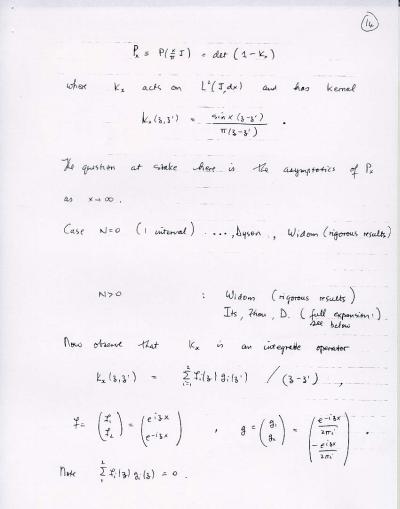 14
P_x ≡ P(x/π J) = det (1 - K_x)
where K_x acts on L²(J, dx) and has kernel
K_x(z,z') = sin x(z-z') / π(z-z') .
The question at stake here is the asymptotics of P_x
as x→∞ .
Case N=0 (1 interval) ...., Dyson ., Widom (rigorous results)
N>0 : Widom (rigorous results)
Its, Zhou, D. (full expansion!)
see below
Now observe that K_x is an integrable operator
K_x(z,z') = Σ_{i=1}^{2} f_i(z) g_i(z') / (z-z') ,
f = (f_1 f_2) = (e^{izx} e^{-izx}) , g = (g_1 g_2) = (e^{-izx}/2πi -e^{izx}/2πi) .
Note Σ_1^2 f_i(z) g_i(z) = 0 .